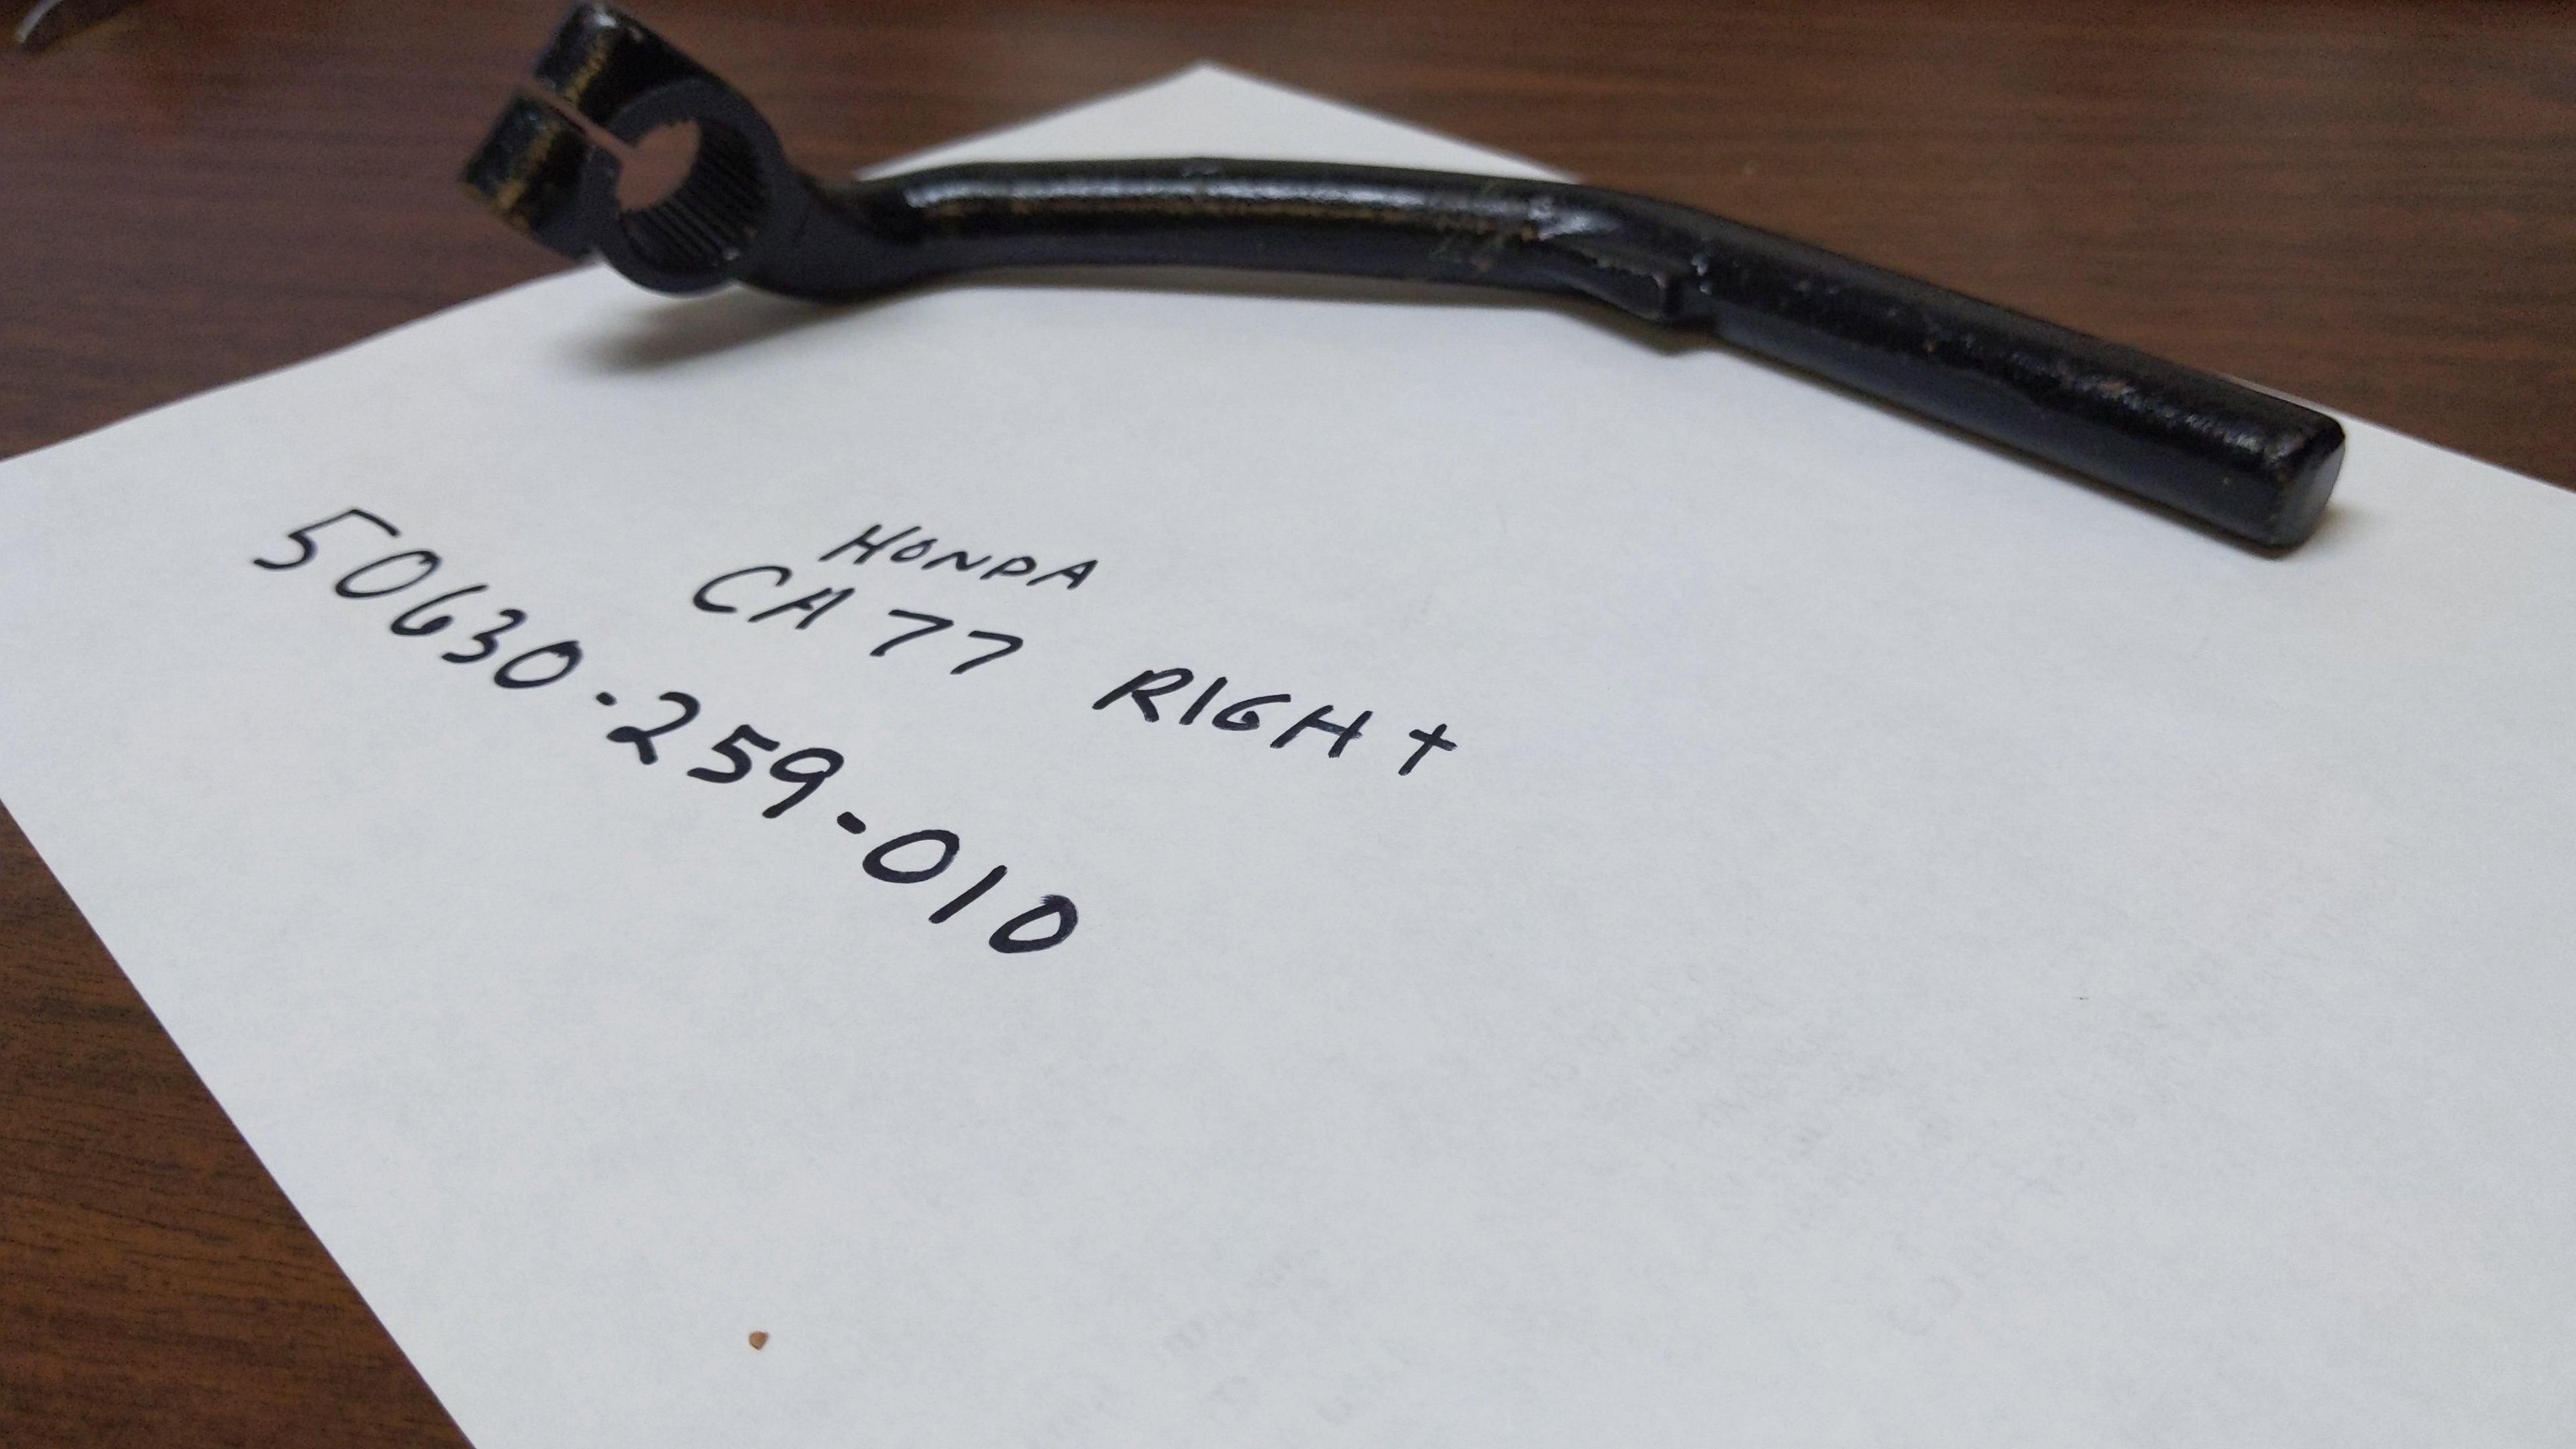 HONDA
CA77 RIGHt
50630-259-010